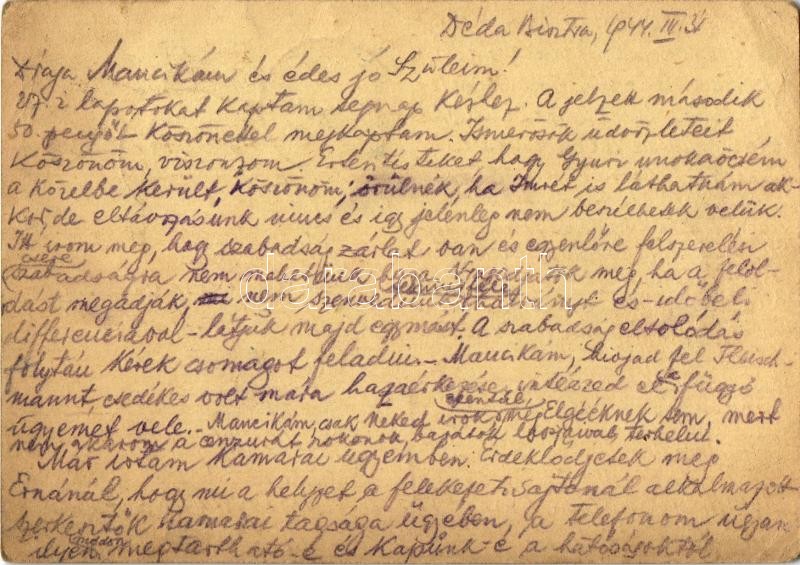 Déda Bisztra, 944. III. 31
Drága Mancikám és édes jó Szüleim!
27.-i lapotokat kaptam tegnap kézhez. A jelzett második
50. pengőt köszönettel megkaptam. Ismerősök üdvözleteit
köszönöm, viszonzom. Értesítésteket hogy Gyuri unokaöcsém
a közelbe került, köszönöm, örülnék, ha Imrét is láthatnám ak-
kor, de eltávozásunk nincs és így jelenleg nem beszélhetek velük.
Itt írom meg, hogy szabadság zárlat van és egyenlőre felszerelési
csere
szabadságra nem mehetünk haza. meg, ha a felol-
dást megadják, nem és időbeli
differenciával - látjuk majd egymást. A szabadság eltolódás
folytán kérek csomagot feladni. - Mancikám, hívjad fel Fleisch-
mannt esedékes volt mára hazaérkezése, intézzed el függő
ügyemet vele. - Mancikám, csak neked írok még Elgééknek sem, mert
nem akarom a cenzúrát rokonok, barátok lapjaival terhelni.
Már írtam kamarai ügyemben. Érdeklődjetek meg
Ernánál, hogy mi a helyzet a felekezeti sajtónál alkalmazott
szerkesztők kamarai tagsága ügyében, a telefonom ugyan
ilyen módon megtartható-e és kapunk-e a hatóságoktól
databanth